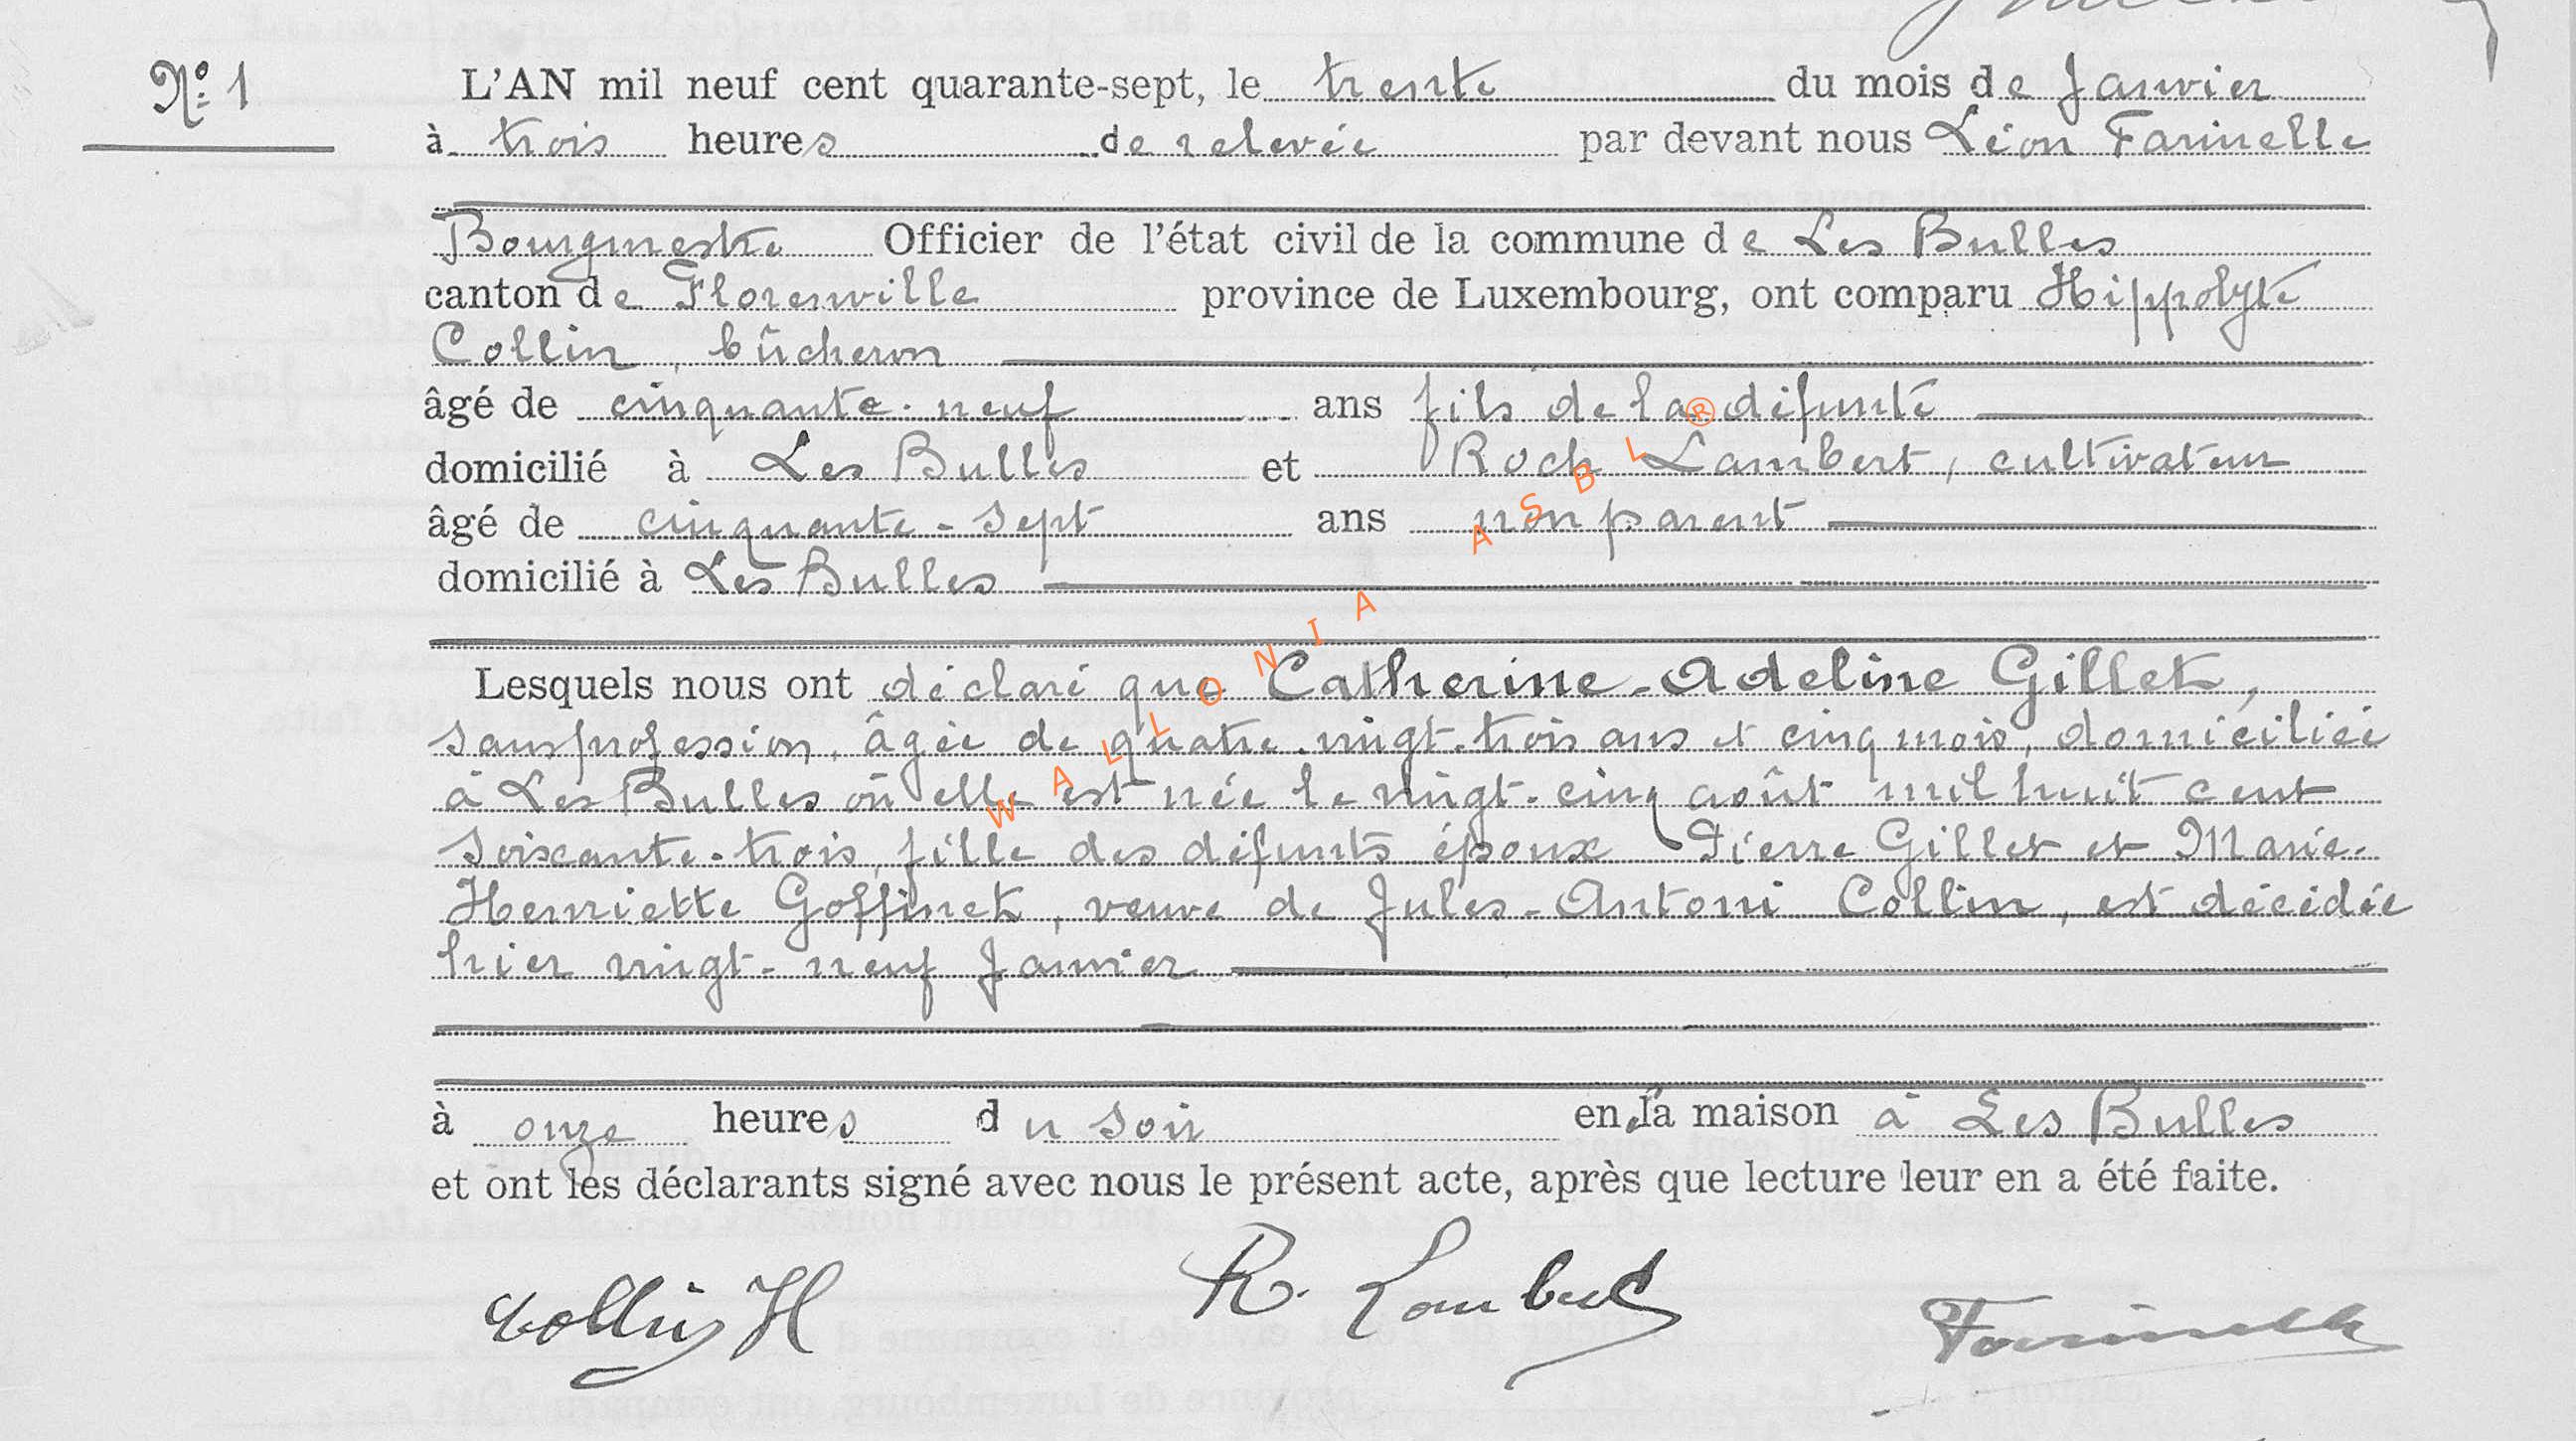 N° 1
L'AN mil neuf cent quarante-sept, le trente du mois de Janvier
à trois heures de relevée par devant nous Léon Farinelle
Bourgmestre Officier de l'état civil de la commune de Les Bulles
canton de Florenville province de Luxembourg, ont comparu Hippolyte
Collin, bûcheron
âgé de cinquante-neuf ans fils de la défunte
domicilié à Les Bulles et Roch Lambert, cultivateur
âgé de cinquante-sept ans non parent
domicilié à Les Bulles
Lesquels nous ont déclaré que Catherine-Adeline Gillet,
sans profession, âgée de quatre-vingt-trois ans et cinq mois, domiciliée
à Les Bulles où elle est née le vingt-cinq août mil huit cent
soixante-trois, fille des défunts époux Pierre Gillet et Marie-
Henriette Goffinet, veuve de Jules-Antoni Collin, est décédée
hier vingt-neuf Janvier
à onze heures du soir en la maison à Les Bulles
et ont les déclarants signé avec nous le présent acte, après que lecture leur en a été faite.
Collin H R. Lambert Farinelle
WALLONIA ASBL ®